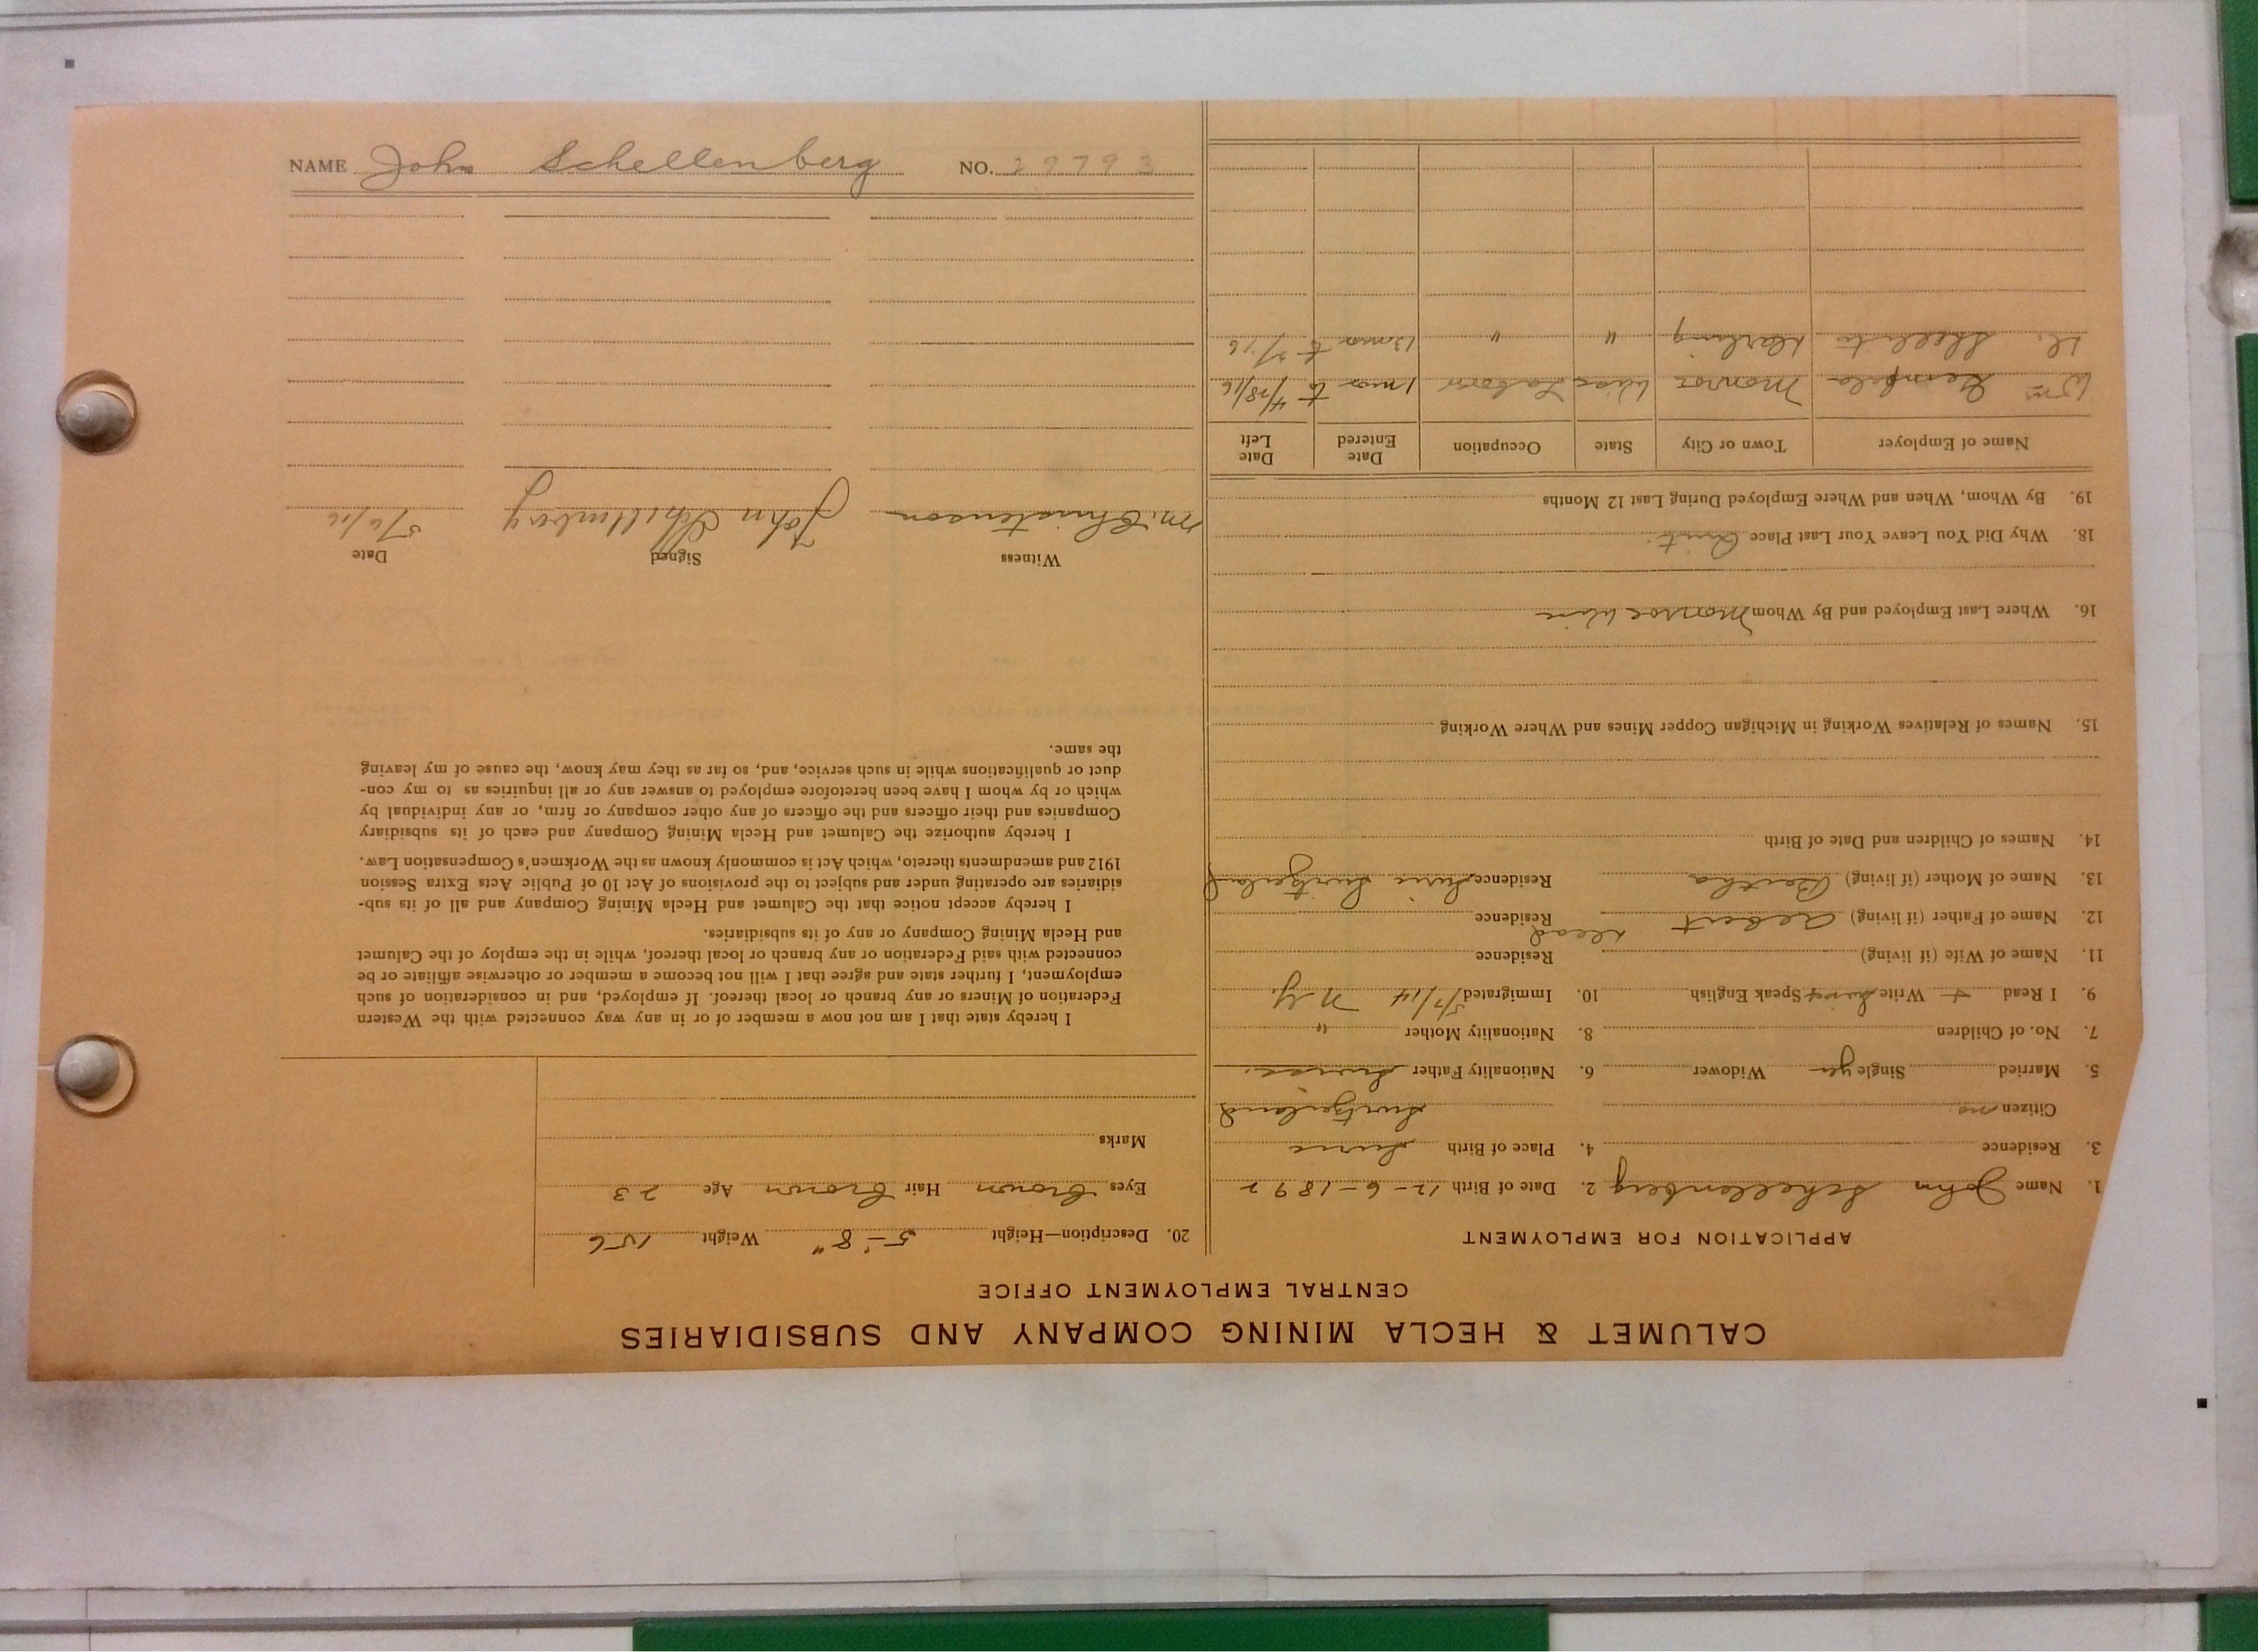 NAME John Schellenberg NO. 29793
CALUMET & HECLA MINING COMPANY AND SUBSIDIARIES
CENTRAL EMPLOYMENT OFFICE
APPLICATION FOR EMPLOYMENT
1. Name John Schellenberg 2. Date of Birth 12-6-1892
3. Residence 4. Place of Birth
Citizen no Switzerland
5. Married Single yes Widower 6. Nationality Father Swiss
7. No. of Children 8. Nationality Mother "
9. I Read + Write Swiss Speak English 10. Immigrated 5/14 N.Y.
11. Name of Wife (if living) Residence
12. Name of Father (if living) Albert dead Residence
13. Name of Mother (if living) Bertha Residence Switzerland
14. Names of Children and Date of Birth
15. Names of Relatives Working in Michigan Copper Mines and Where Working
16. Where Last Employed and By Whom Monroe Wis
18. Why Did You Leave Your Last Place Quit
19. By Whom, When and Where Employed During Last 12 Months
Name of Employer Town or City State Occupation Date Entered Date Left
Wm Monroe Wisc Labor 1 mos to 4/28/16
" " 13 mos to
20. Description—Height 5-'8" Weight 156
Eyes brown Hair brown Age 23
Marks
I hereby state that I am not now a member of or in any way connected with the Western
Federation of Miners or any branch or local thereof. If employed, and in consideration of such
employment, I further state and agree that I will not become a member or otherwise affiliate or be
connected with said Federation or any branch or local thereof, while in the employ of the Calumet
and Hecla Mining Company or any of its subsidiaries.
I hereby accept notice that the Calumet and Hecla Mining Company and all of its sub-
sidiaries are operating under and subject to the provisions of Act 10 of Public Acts Extra Session
1912 and amendments thereto, which Act is commonly known as the Workmen's Compensation Law.
I hereby authorize the Calumet and Hecla Mining Company and each of its subsidiary
Companies and their officers and the officers of any other company or firm, or any individual by
which or by whom I have been heretofore employed to answer any or all inquiries as to my con-
duct or qualifications while in such service, and, so far as they may know, the cause of my leaving
the same.
Witness Signed Date
M. Christenson John Schellenberg 5/6/16